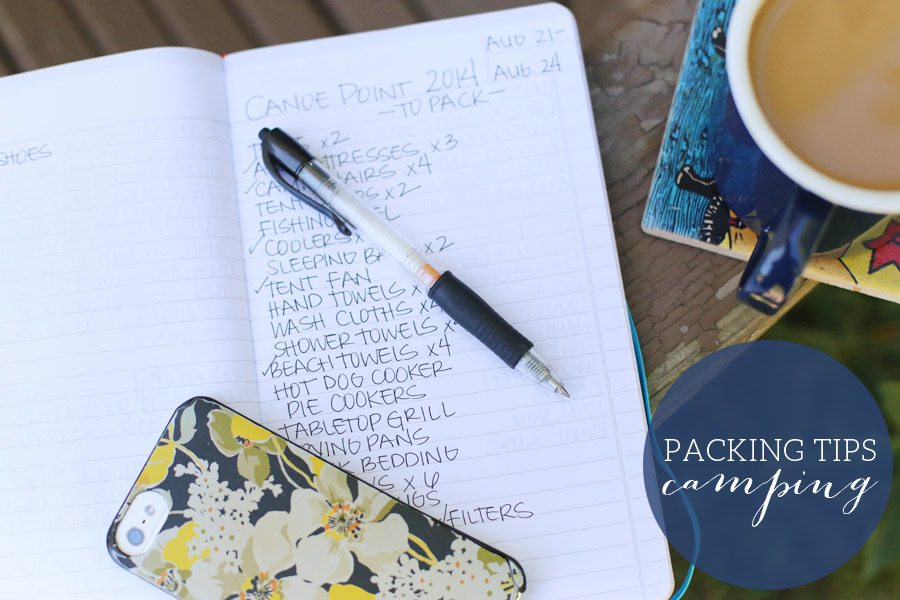 SHOES
AUG. 21-
AUG. 24
CANOE POINT 2014
- TO PACK -
x2
x3
x4
TENT x2
FISHING
COOLERS
SLEEPING x2
TENT FAN
HAND TOWELS
WASH CLOTHS
SHOWER TOWELS
BEACH TOWELS x4
HOT DOG COOKER
PIE COOKERS
TABLETOP GRILL
PANS
BEDDING
x 6
/FILTERS
PACKING TIPS
camping